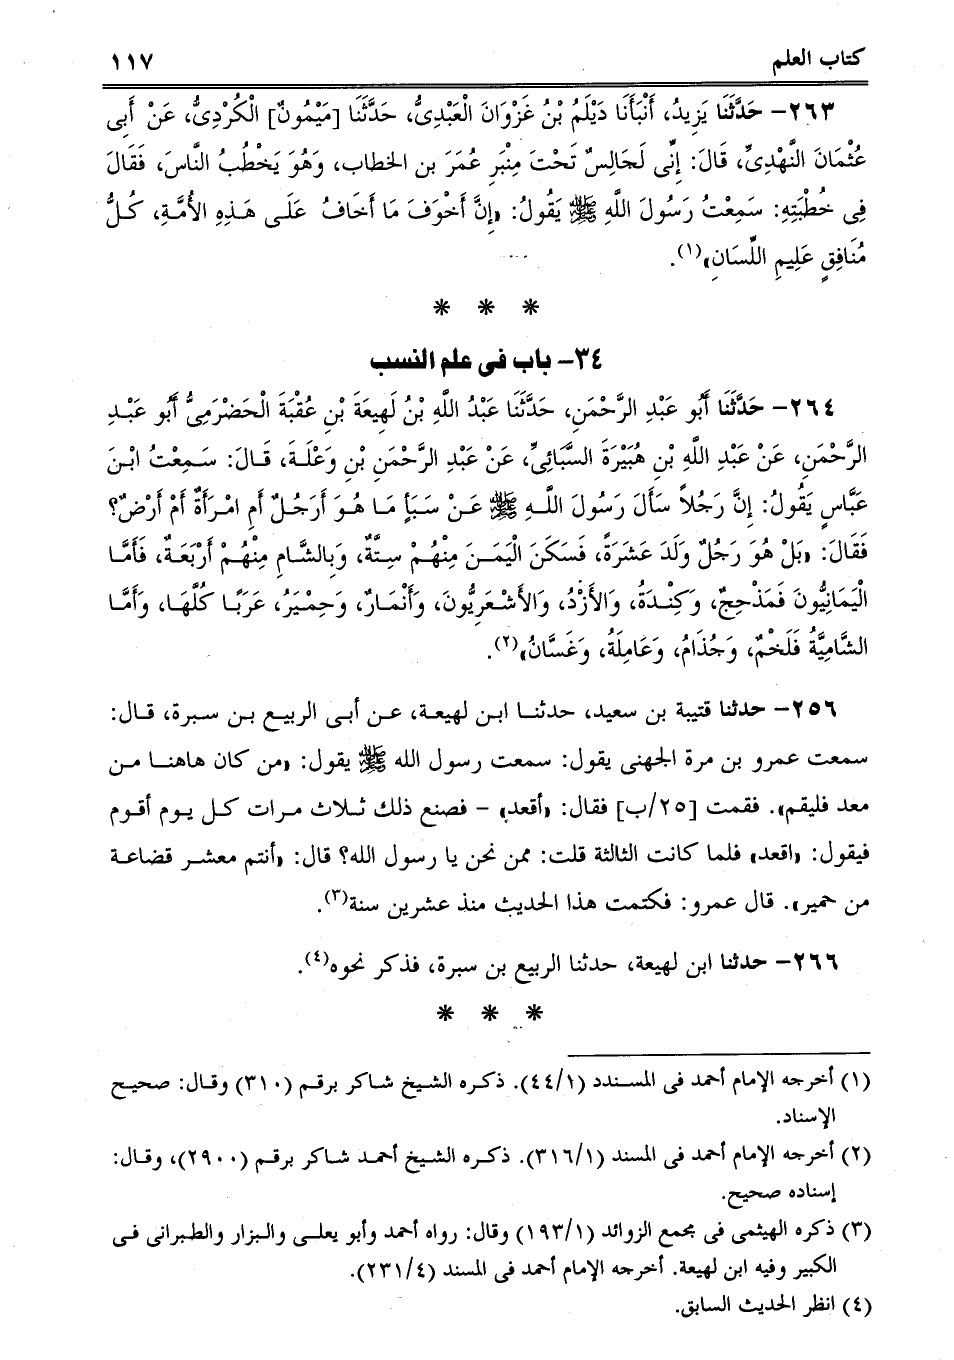 كتاب العلم ١١٧
٢٦٣- حَدَّثَنَا يَزِيدُ، أَنْبَأَنَا دَيْلَمُ بْنُ غَزْوَانَ الْعَبْدِىُّ، حَدَّثَنَا [مَيْمُونٌ] الْكُرْدِىُّ، عَنْ أَبِى
عُثْمَانَ النَّهْدِىِّ، قَالَ: إِنِّى لَجَالِسٌ تَحْتَ مِنْبَرِ عُمَرَ بن الخطاب، وَهُوَ يَخْطُبُ النَّاسَ، فَقَالَ
فِى خُطْبَتِهِ: سَمِعْتُ رَسُولَ اللَّهِ ﷺ يَقُولُ: «إِنَّ أَخْوَفَ مَا أَخَافُ عَلَى هَذِهِ الأُمَّةِ، كُلُّ
مُنَافِقٍ عَلِيمِ اللِّسَانِ»(١).
* * *
٣٤- باب فى علم النسب
٢٦٤- حَدَّثَنَا أَبُو عَبْدِ الرَّحْمَنِ، حَدَّثَنَا عَبْدُ اللَّهِ بْنُ لَهِيعَةَ بْنِ عُقْبَةَ الْحَضْرَمِىُّ أَبُو عَبْدِ
الرَّحْمَنِ، عَنْ عَبْدِ اللَّهِ بْنِ هُبَيْرَةَ السَّبَائِىِّ، عَنْ عَبْدِ الرَّحْمَنِ بْنِ وَعْلَةَ، قَالَ: سَمِعْتُ ابْنَ
عَبَّاسٍ يَقُولُ: إِنَّ رَجُلاً سَأَلَ رَسُولَ اللَّهِ ﷺ عَنْ سَبَأٍ مَا هُوَ أَرَجُلٌ أَمِ امْرَأَةٌ أَمْ أَرْضٌ؟
فَقَالَ: «بَلْ هُوَ رَجُلٌ وَلَدَ عَشَرَةً، فَسَكَنَ الْيَمَنَ مِنْهُمْ سِتَّةٌ، وَبِالشَّامِ مِنْهُمْ أَرْبَعَةٌ، فَأَمَّا
الْيَمَانِيُّونَ فَمَذْحِجٌ، وَكِنْدَةُ، وَالأَزْدُ، وَالأَشْعَرِيُّونَ، وَأَنْمَارٌ، وَحِمْيَرُ، عَرَبًا كُلَّهَا، وَأَمَّا
الشَّامِيَّةُ فَلَخْمٌ، وَجُذَامُ، وَعَامِلَةُ، وَغَسَّانُ»(٢).
٢٥٦- حدثنا قتيبة بن سعيد، حدثنا ابن لهيعة، عن أبى الربيع بن سبرة، قال:
سمعت عمرو بن مرة الجهنى يقول: سمعت رسول الله ﷺ يقول: «من كان هاهنا من
معد فليقم». فقمت [٢٥/ب] فقال: «أقعد» - فصنع ذلك ثلاث مرات كل يوم أقوم
فيقول: «اقعد» فلما كانت الثالثة قلت: ممن نحن يا رسول الله؟ قال: «أنتم معشر قضاعة
من حمير». قال عمرو: فكتمت هذا الحديث منذ عشرين سنة(٣).
٢٦٦- حدثنا ابن لهيعة، حدثنا الربيع بن سبرة، فذكر نحوه(٤).
* * *
(١) أخرجه الإمام أحمد فى المسندد (٤٤/١). ذكره الشيخ شاكر برقم (٣١٠) وقال: صحيح
الإسناد.
(٢) أخرجه الإمام أحمد فى المسند (٣١٦/١). ذكره الشيخ أحمد شاكر برقم (٢٩٠٠)، وقال:
إسناده صحيح.
(٣) ذكره الهيثمى فى مجمع الزوائد (١٩٣/١) وقال: رواه أحمد وأبو يعلى والبزار والطبرانى فى
الكبير وفيه ابن لهيعة. أخرجه الإمام أحمد فى المسند (٢٣١/٤).
(٤) انظر الحديث السابق.